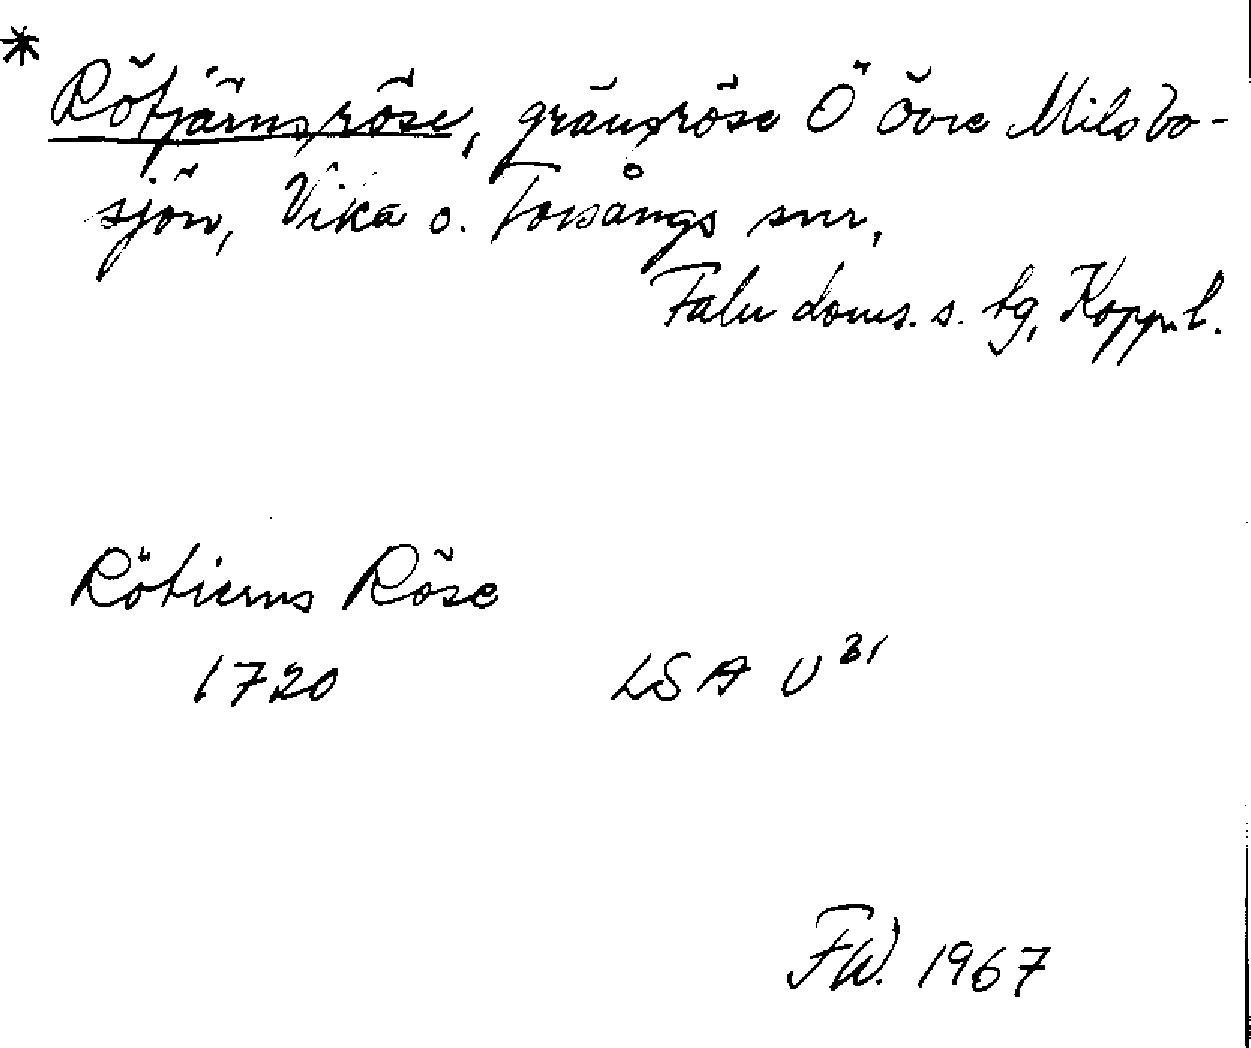 * Rötjärnsröse, gränsröse Ö Övre Milsbo-
sjön, Vika o. Torsångs snr,
Falu doms. s. tg, Kopp. l.
Rötierns Röse
1720 LSA U31
FW. 1967